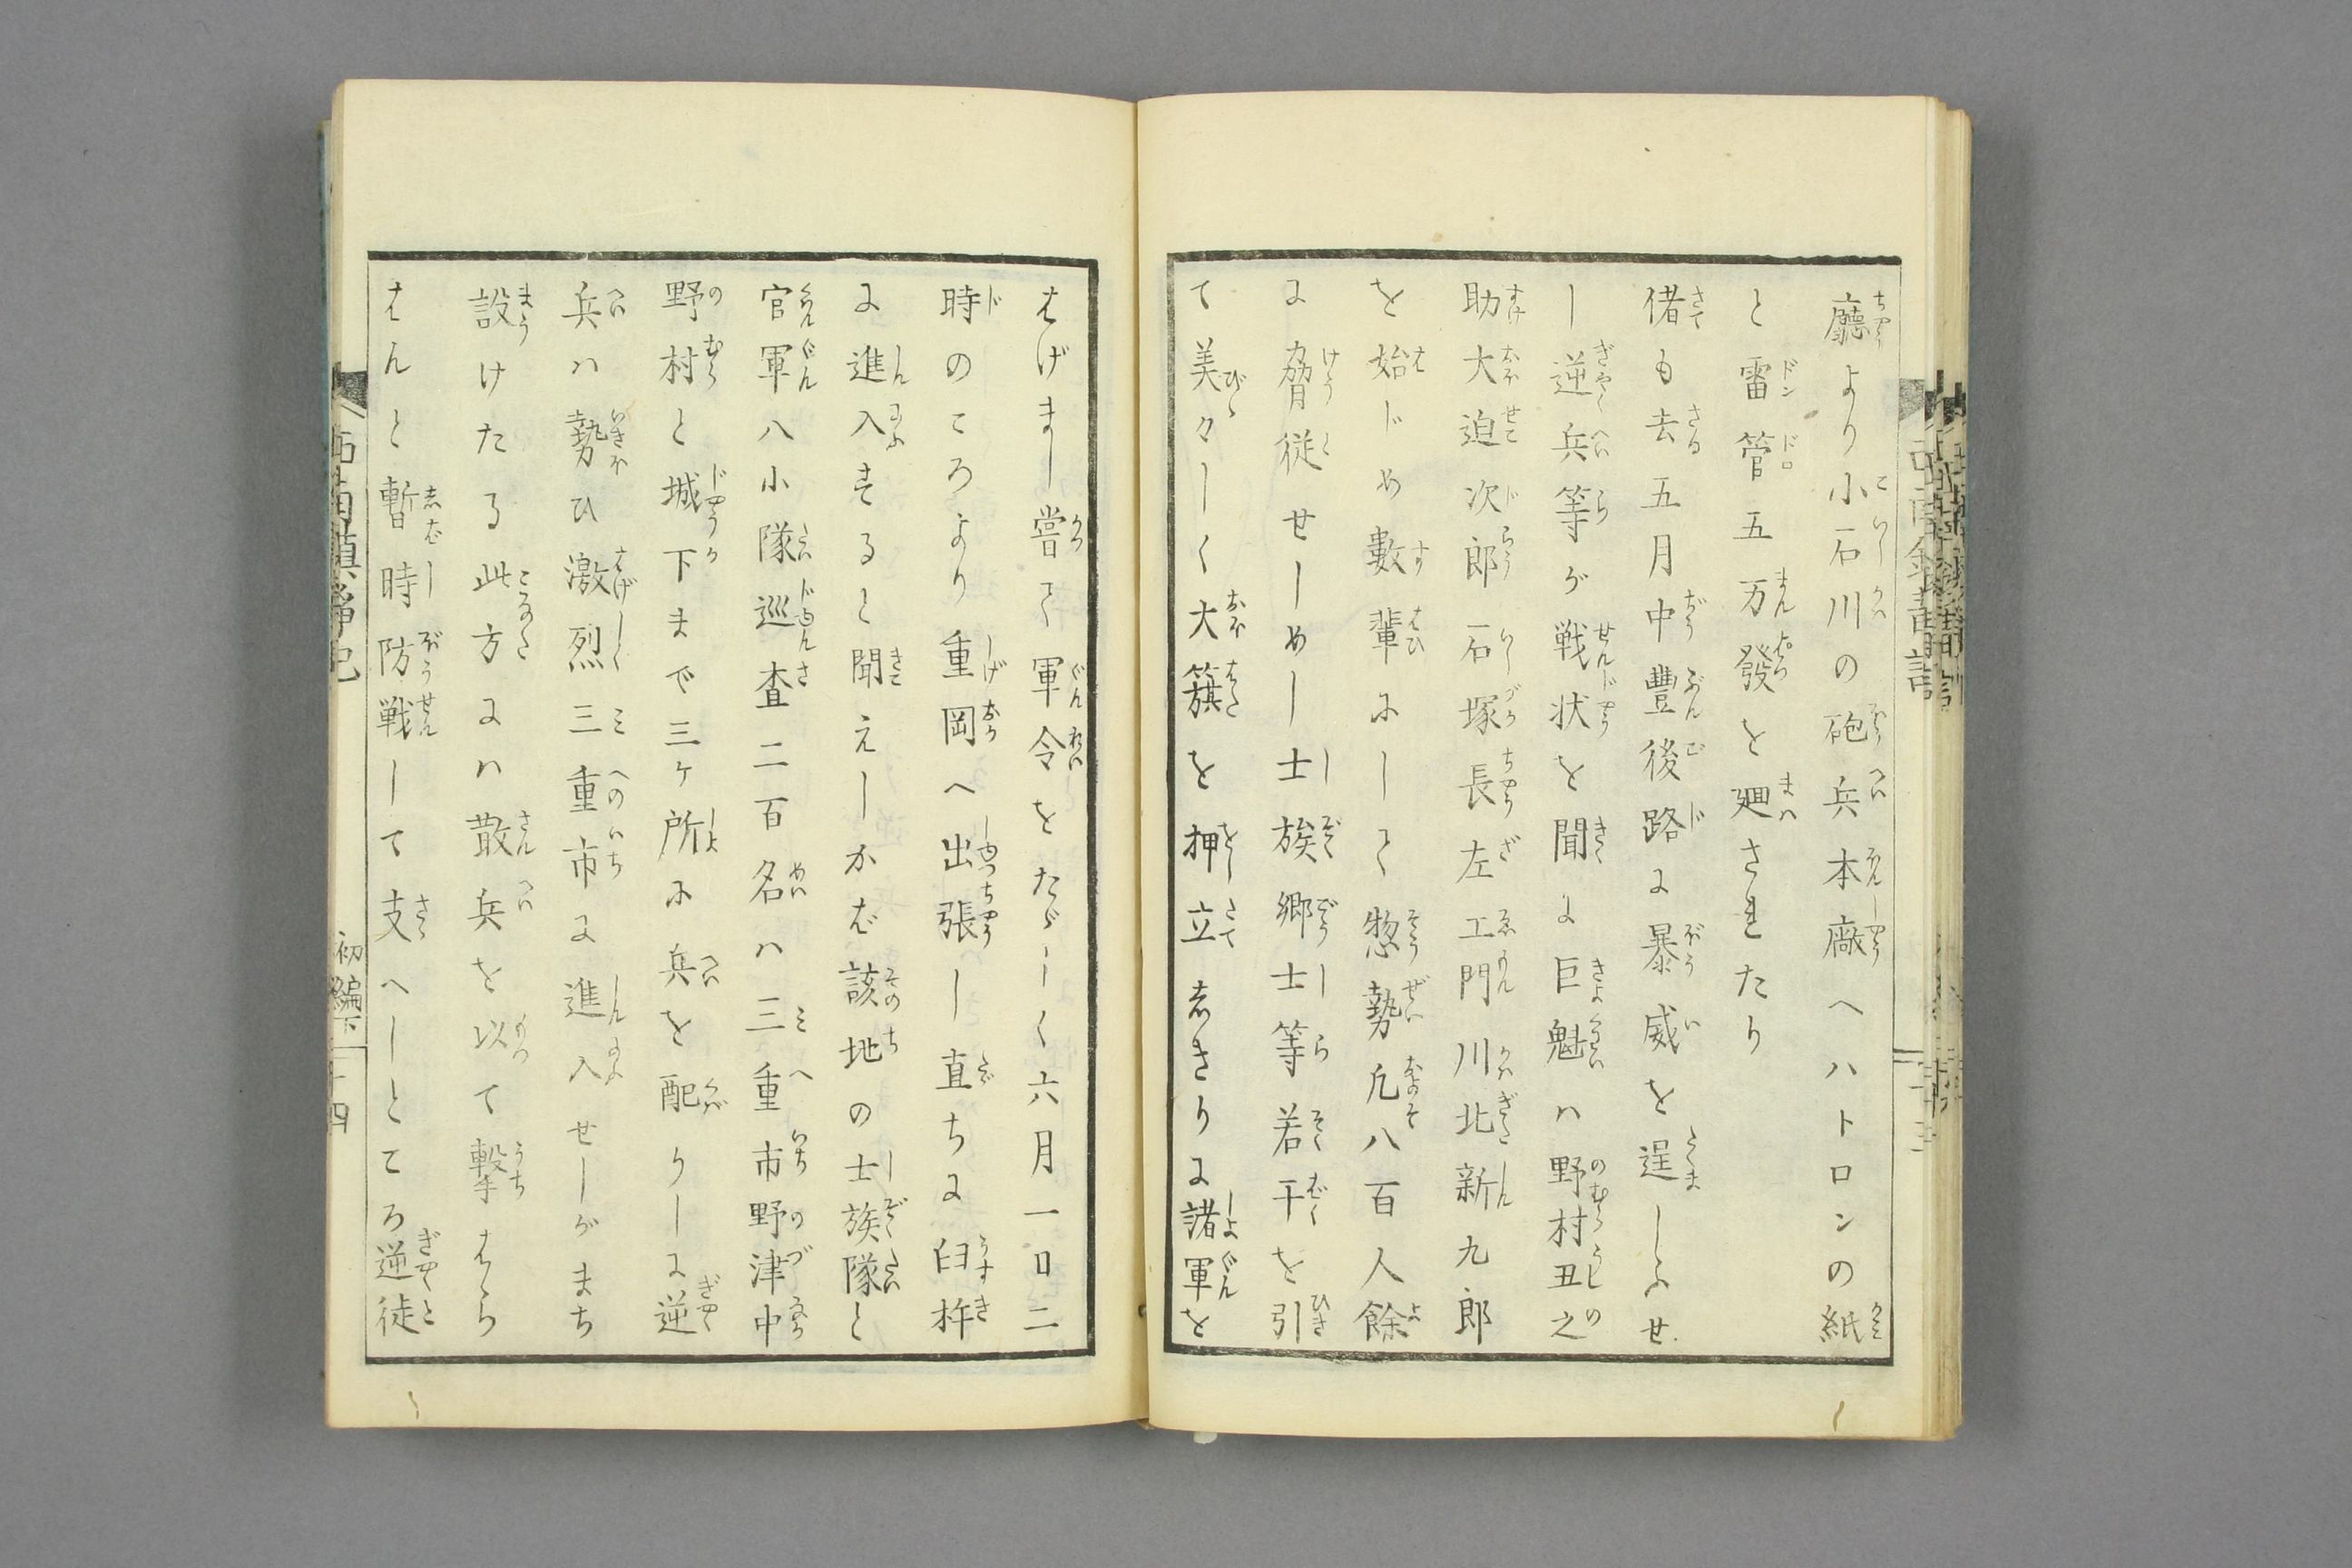 廳より小石川の砲兵本廠へハトロンの紙
と雷管五万發を廻されたり
偖も去五月中豊後路に暴威を逞しふせ
し逆兵等が戦状を聞に巨魁ハ野村丑之
助大迫次郎石塚長左エ門川北新九郎
を始じめ數輩にして惣勢凡八百人餘
に脅従せしめし士族郷士等若干を引
て美々しく大籏を押立志きりに諸軍を
はげまし嘗て軍令をたゞしく六月一日二
時のころより重岡へ出張し直ちに臼杵
に進入すると聞えしかば該地の士族隊と
官軍八小隊巡査二百名ハ三重市野津中
野村と城下まで三ケ所に兵を配りしに逆
兵ハ勢ひ激烈三重市に進入せしがまち
設けたる此方にハ散兵を以て撃はら
はんと暫時防戦して支へしところ逆徒
初編下